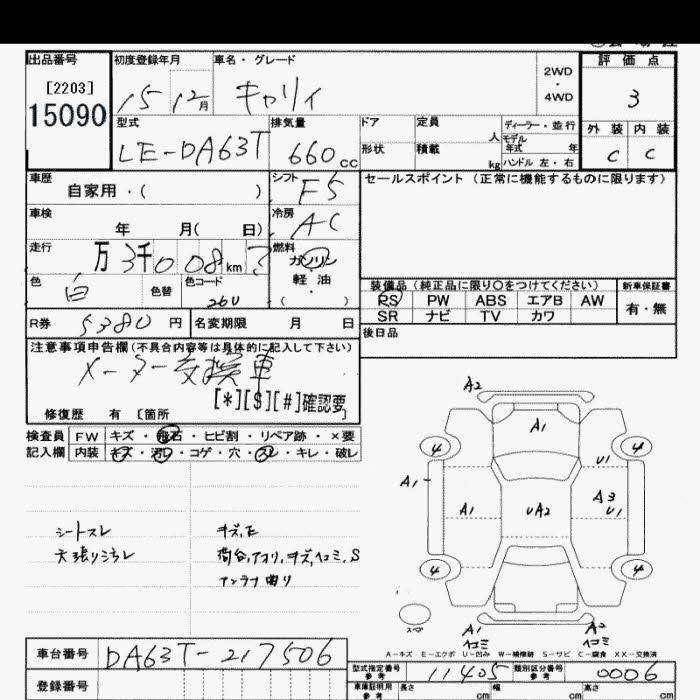 出品番号
[2203]
15090
初度登録年月
15 12月
車名・グレード
キャリィ
2WD
・
4WD
評価点
3
外装 内装
C C
型式
LE-DA63T
排気量
660cc
ドア
形状
定員
人
積載
kg
ディーラー・並行
モデル
年式 年
ハンドル 左・右
車歴
自家用・( )
シフト
F5
セールスポイント (正常に機能するものに限ります)
車検
年 月( 日)
冷房
AC
走行
万 3千008km ?
燃料
ガソリン
軽・油
・( )
色
白
色替
色コード
26U
装備品 (純正品に限り○をつけてください)
新車保証書
PS PW ABS エアB AW
SR ナビ TV カワ
有・無
R券
5380円
名変期限 月 日
後日品
注意事項申告欄(不具合内容等は具体的に記入して下さい)
メーター交換車
[*][$][#]確認要
修復歴 有 [箇所
検査員
記入欄
FW キズ・飛石・ヒビ割・リペア跡・×要
内装 キズ・汚レ・コゲ・穴・スレ・キレ・破レ
シートスレ
天張りシミ
キズ,E
荷台,アオリ,キズ,ヘコミ,S
アンテナ曲り
A2
A1
4
4
U1
A1
A1
UA2
A3
U1
4
4
スペア
A1
ヘコミ
A2
ヘコミ
A-キズ E-エクボ U-凹み W-補修跡 S-サビ C-腐食 XX-交換済
車台番号
DA63T-217506
登録番号
型式指定番号
参考
11405
類別区分番号
参考
0006
車庫証明用
参考
長さ
cm
幅
cm
高さ
cm